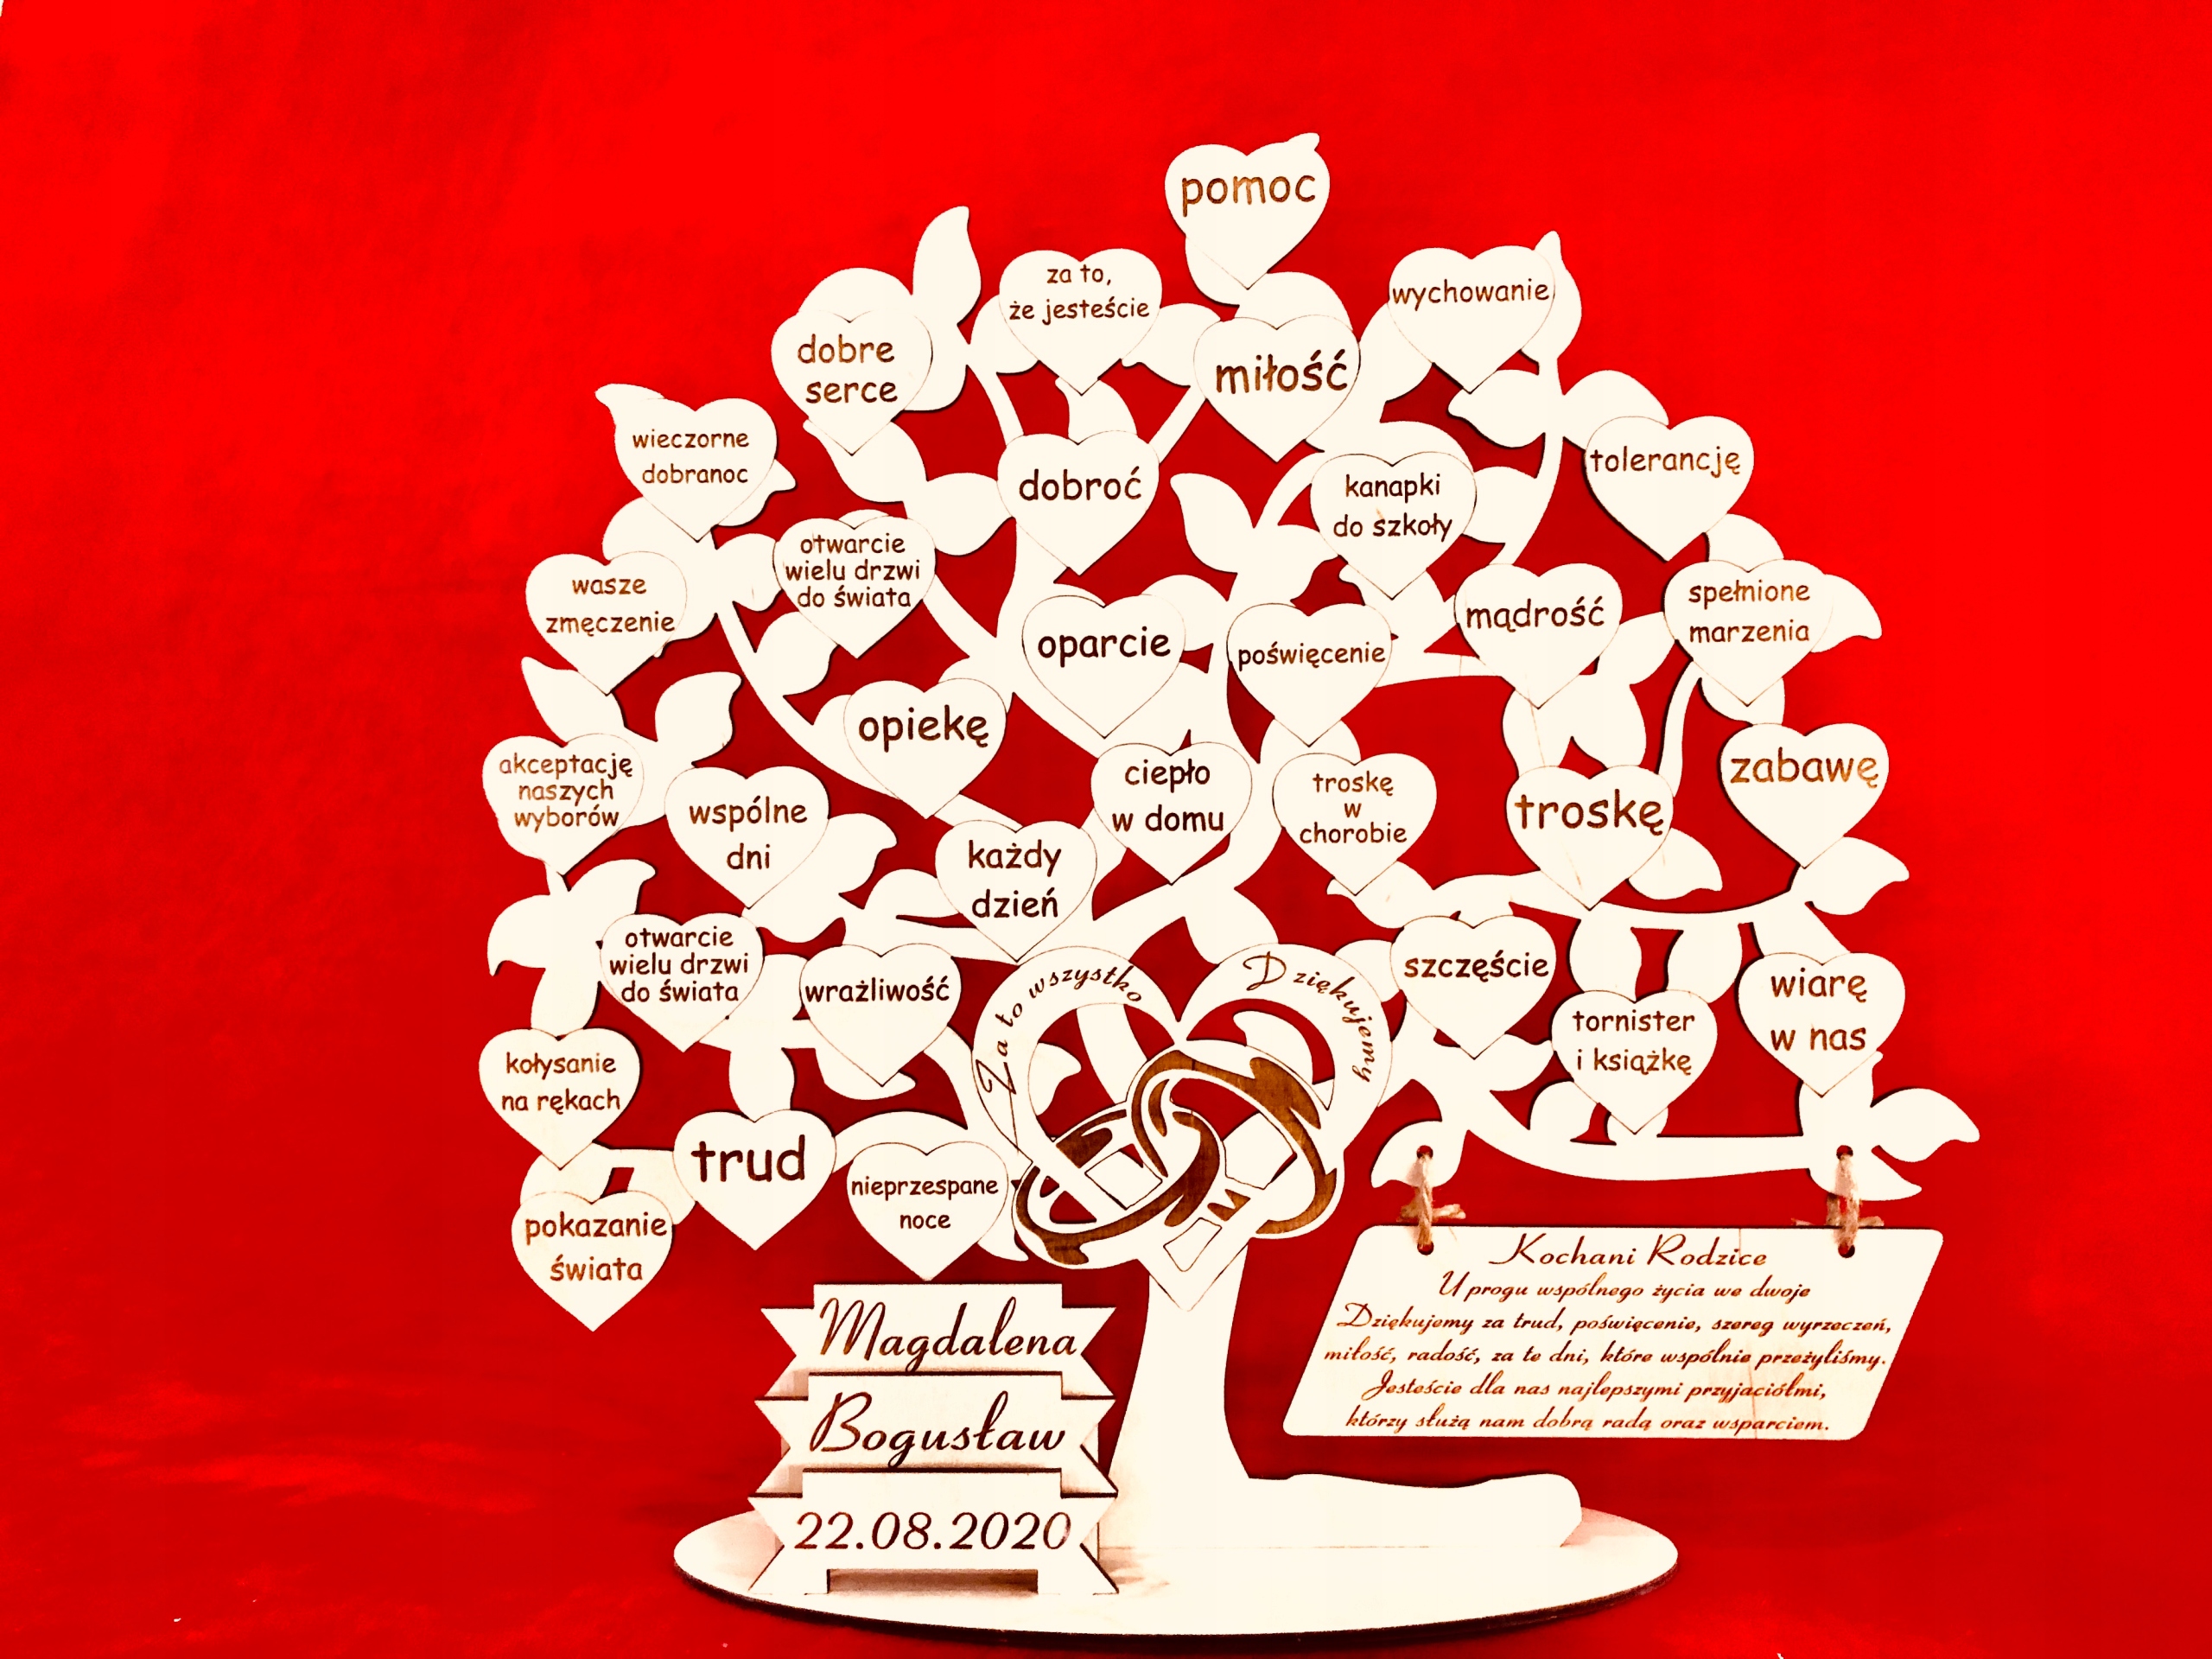 pomoc
za to,
że jesteście
wychowanie
dobre
serce
miłość
wieczorne
dobranoc
dobroć
kanapki
do szkoły
tolerancję
otwarcie
wielu drzwi
do świata
wasze
zmęczenie
oparcie
poświęcenie
mądrość
spełnione
marzenia
opiekę
akceptację
naszych
wyborów
wspólne
dni
ciepło
w domu
troskę
w
chorobie
troskę
zabawę
każdy
dzień
otwarcie
wielu drzwi
do świata
wrażliwość
Za to wszystko
Dziękujemy
szczęście
tornister
i książkę
wiarę
w nas
kołysanie
na rękach
trud
nieprzespane
noce
pokazanie
świata
Magdalena
Bogusław
22.08.2020
Kochani Rodzice
U progu wspólnego życia we dwoje
Dziękujemy za trud, poświęcenie, szereg wyrzeczeń,
miłość, radość, za te dni, które wspólnie przeżyliśmy.
Jesteście dla nas najlepszymi przyjaciółmi,
którzy służą nam dobrą radą oraz wsparciem.